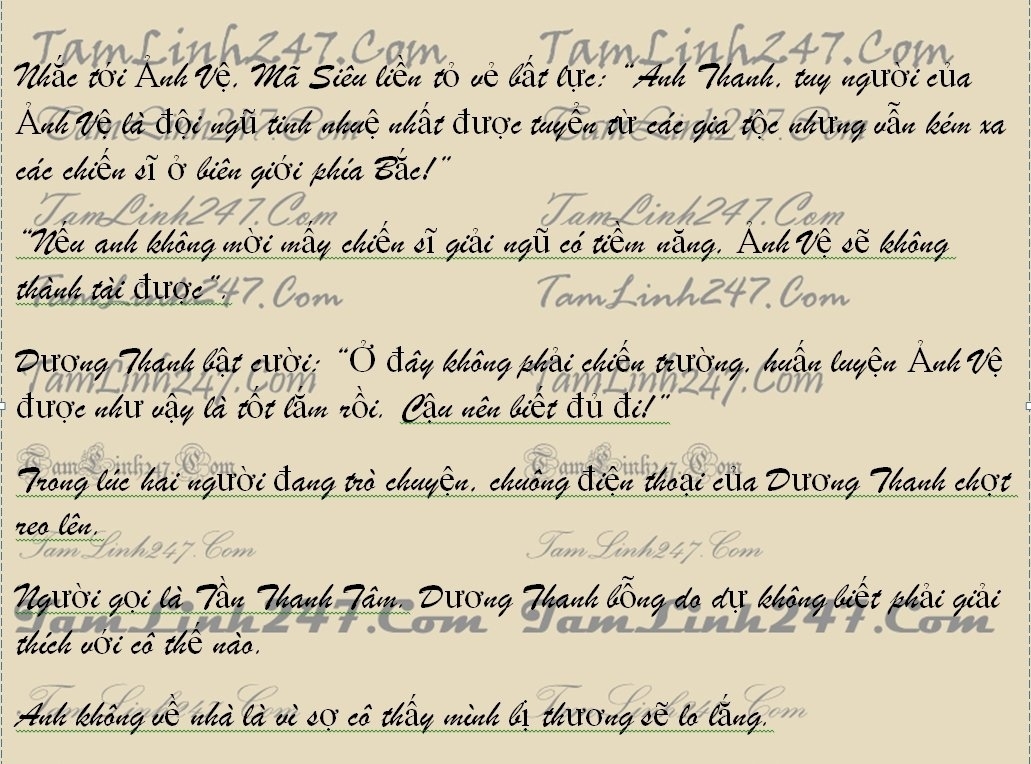 TamLinh247.Com TamLinh247.Com
Nhắc tới Ảnh Vệ, Mã Siêu liền tỏ vẻ bất lực: “Anh Thanh, tuy người của
TamLinh247.Com TamLinh247.Com
Ảnh Vệ là đội ngũ tinh nhuệ nhất được tuyển từ các gia tộc nhưng vẫn kém xa
các chiến sĩ ở biên giới phía Bắc!”
TamLinh247.Com TamLinh247.Com
“Nếu anh không mời mấy chiến sĩ giải ngũ có tiềm năng, Ảnh Vệ sẽ không
thành tài được”.
TamLinh247.Com TamLinh247.Com
Dương Thanh bật cười: “Ở đây không phải chiến trường, huấn luyện Ảnh Vệ
TamLinh247.Com TamLinh247.Com
được như vậy là tốt lắm rồi. Cậu nên biết đủ đi!”
TamLinh247.Com TamLinh247.Com
Trong lúc hai người đang trò chuyện, chuông điện thoại của Dương Thanh chợt
reo lên.
TamLinh247.Com TamLinh247.Com
Người gọi là Tần Thanh Tâm, Dương Thanh bỗng do dự không biết phải giải
TamLinh247.Com TamLinh247.Com
thích với cô thế nào.
TamLinh247.Com TamLinh247.Com
Anh không về nhà là vì sợ cô thấy mình bị thương sẽ lo lắng.